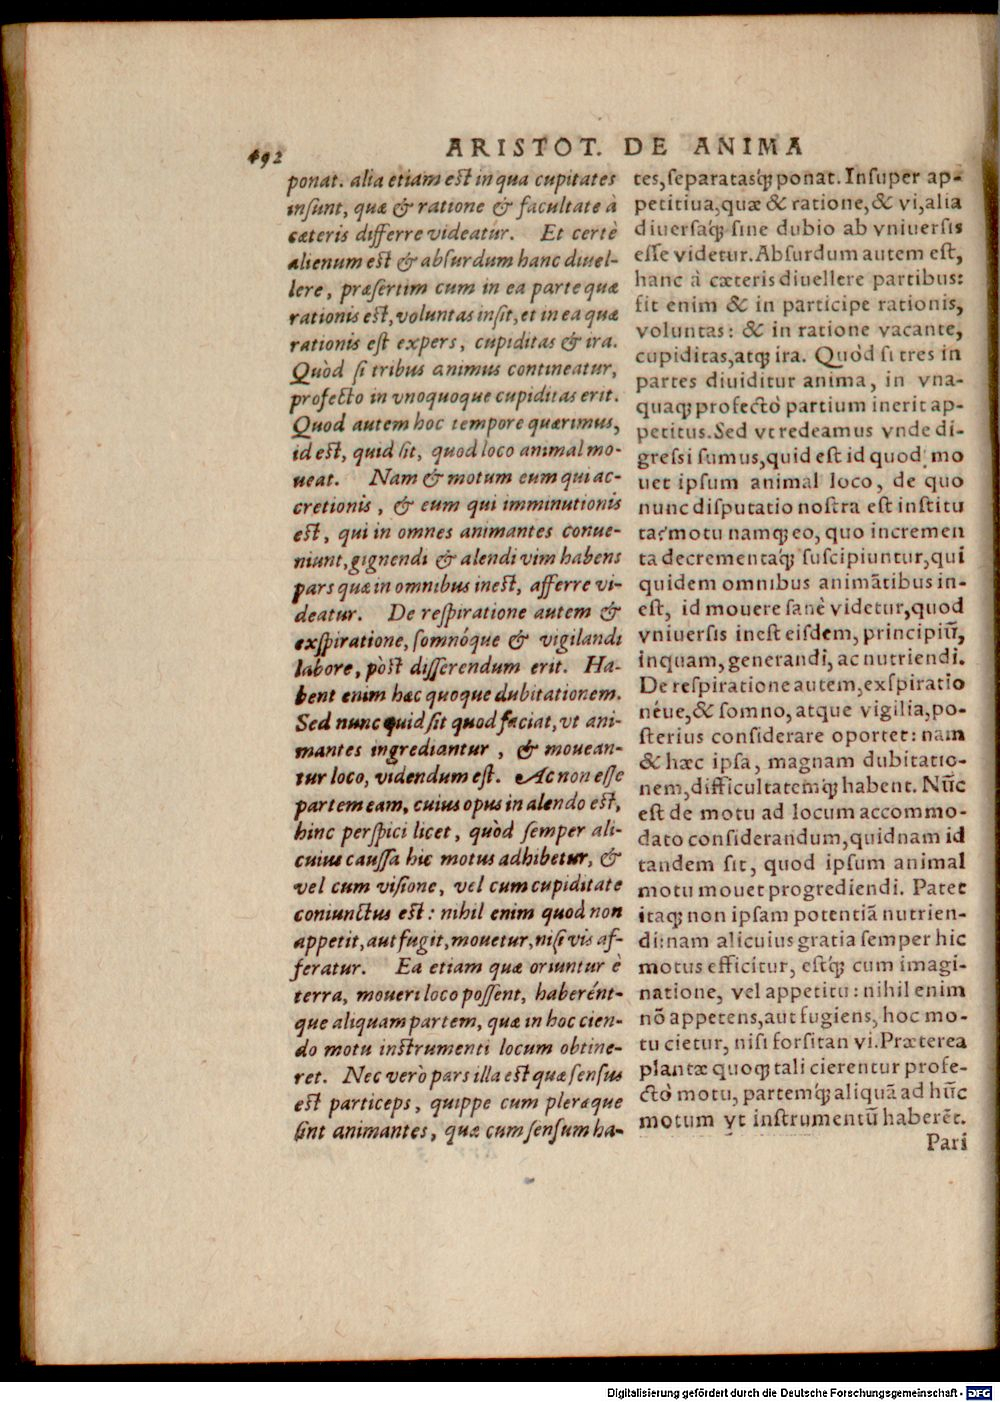 492
ARISTOT. DE ANIMA
ponat. alia etiam est in qua cupitates
insunt, quæ & ratione & facultate à
cæteris differre videatur. Et certè
alienum est & absurdum hanc diuel-
lere, præsertim cum in ea parte quæ
rationis est, voluntas insit, et in ea quæ
rationis est expers, cupiditas & ira.
Quòd si tribus animus contineatur,
profecto in vnoquoque cupiditas erit.
Quod autem hoc tempore quærimus,
id est, quid sit, quod loco animal mo-
ueat. Nam & motum eum qui ac-
cretionis, & eum qui imminutionis
est, qui in omnes animantes conue-
niunt, gignendi & alendi vim habens
pars quæ in omnibus inest, afferre vi-
deatur. De respiratione autem &
exspiratione, somnóque & vigilandi
labore, pòst disserendum erit. Ha-
bent enim hæc quoque dubitationem.
Sed nunc quid sit quod faciat, vt ani-
mantes ingrediantur, & mouean-
tur loco, videndum est. Ac non esse
partem eam, cuius opus in alendo est,
hinc perspici licet, quòd semper ali-
cuius caussa hic motus adhibetur, &
vel cum visione, vel cum cupiditate
coniunctus est: nihil enim quod non
appetit, aut fugit, mouetur, nisi vis af-
feratur. Ea etiam quæ oriuntur è
terra, moueri loco possent, haberént-
que aliquam partem, quæ in hoc cien-
do motu instrumenti locum obtine-
ret. Nec verò pars illa est quæ sensus
est particeps, quippe cum pleræque
sint animantes, quæ cum sensum ha-
tes, separatasq́; ponat. Insuper ap-
petitiua, quæ & ratione, & vi, alia
diuersaq́; sine dubio ab vniuersis
esse videtur. Absurdum autem est,
hanc à cæteris diuellere partibus:
fit enim & in participe rationis,
voluntas: & in ratione vacante,
cupiditas, atq; ira. Quòd si tres in
partes diuiditur anima, in vna-
quaq; profectò partium inerit ap-
petitus. Sed vt redeamus vnde di-
gressi sumus, quid est id quod mo
uet ipsum animal loco, de quo
nunc disputatio nostra est institu
ta? motu namq; eo, quo incremen
ta decrementaq́; suscipiuntur, qui
quidem omnibus animãtibus in-
est, id mouere sanè videtur, quod
vniuersis inest eisdem, principiũ,
inquam, generandi, ac nutriendi.
De respiratione autem, exspiratio
néue, & somno, atque vigilia, po-
sterius considerare oportet: nam
& hæc ipsa, magnam dubitatio-
nem, difficultatemq́; habent. Nũc
est de motu ad locum accommo-
dato considerandum, quidnam id
tandem sit, quod ipsum animal
motu mouet progrediendi. Patet
itaq; non ipsam potentiã nutrien-
di: nam alicuius gratia semper hic
motus efficitur, estq́; cum imagi-
natione, vel appetitu: nihil enim
nõ appetens, aut fugiens, hoc mo-
tu cietur, nisi forsitan vi. Præterea
plantæ quoq; tali cierentur profe-
ctò motu, partemq́; aliquã ad hũc
motum vt instrumentũ haberẽt.
Pari
Digitalisierung gefördert durch die Deutsche Forschungsgemeinschaft - DFG